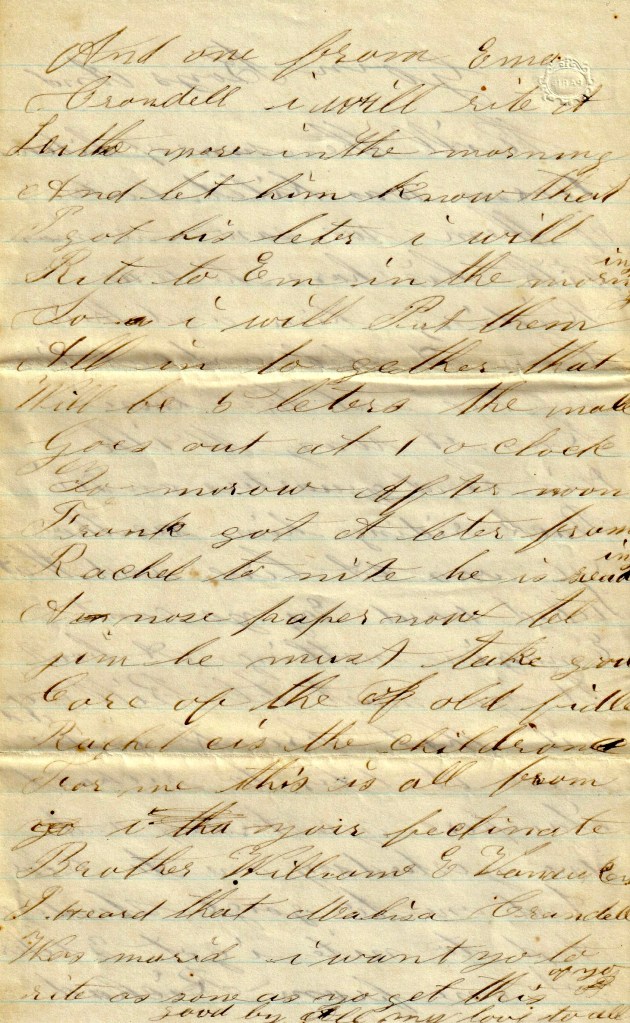 And one from Ema
Crondell i will rite A
Little more in the morning
And let him know that
I got his leter i will
Rite to Em in the morning
So i will Put them
All in to gether that
Will be 5 leters the male
Goes out at 1 o clock
To morow After noon
Frank got A leter from
Rachel to nite he is reading
A nose paper now tel
jim he must take good
Care of the old fidle
Rachel cis the children
For me this is all from
yoir fectinate
Brother William E
I heard that Malisa Crandell
Was marid i want yo to
rite as sone as yo get this
good by All my love to all
of yo